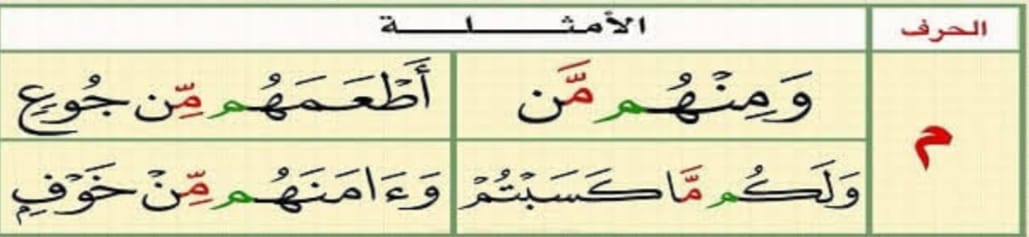 الحرف الأمثــــــلــــــة
م
وَمِنْهُم مَّن أَطْعَمَهُم مِّن جُوعٍ
وَلَكُم مَّا كَسَبْتُمْ وَءَامَنَهُم مِّنْ خَوْفٍ